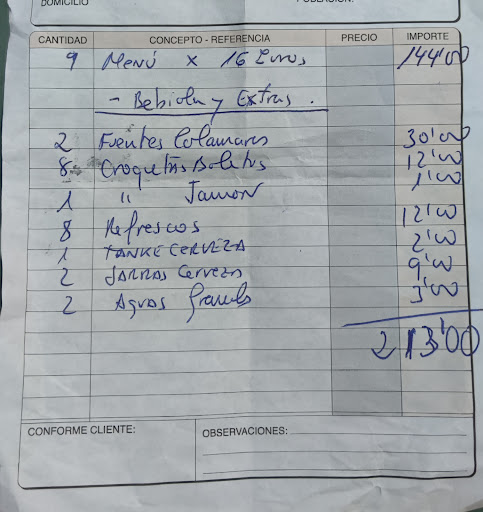 DOMICILIO POBLACIÓN:
CANTIDAD CONCEPTO - REFERENCIA PRECIO IMPORTE
9 Menú x 16 Euros 144'00
- Bebida y Extras.
2 Fuentes Calamares 30'00
8 Croquetas Boletus 12'00
1 " Jamon 1'00
8 Refrescos 12'00
1 TANKE CERVEZA 2'00
2 JARRAS Cerveza 9'00
2 Aguas Grandes 3'00
213'00
CONFORME CLIENTE: OBSERVACIONES: